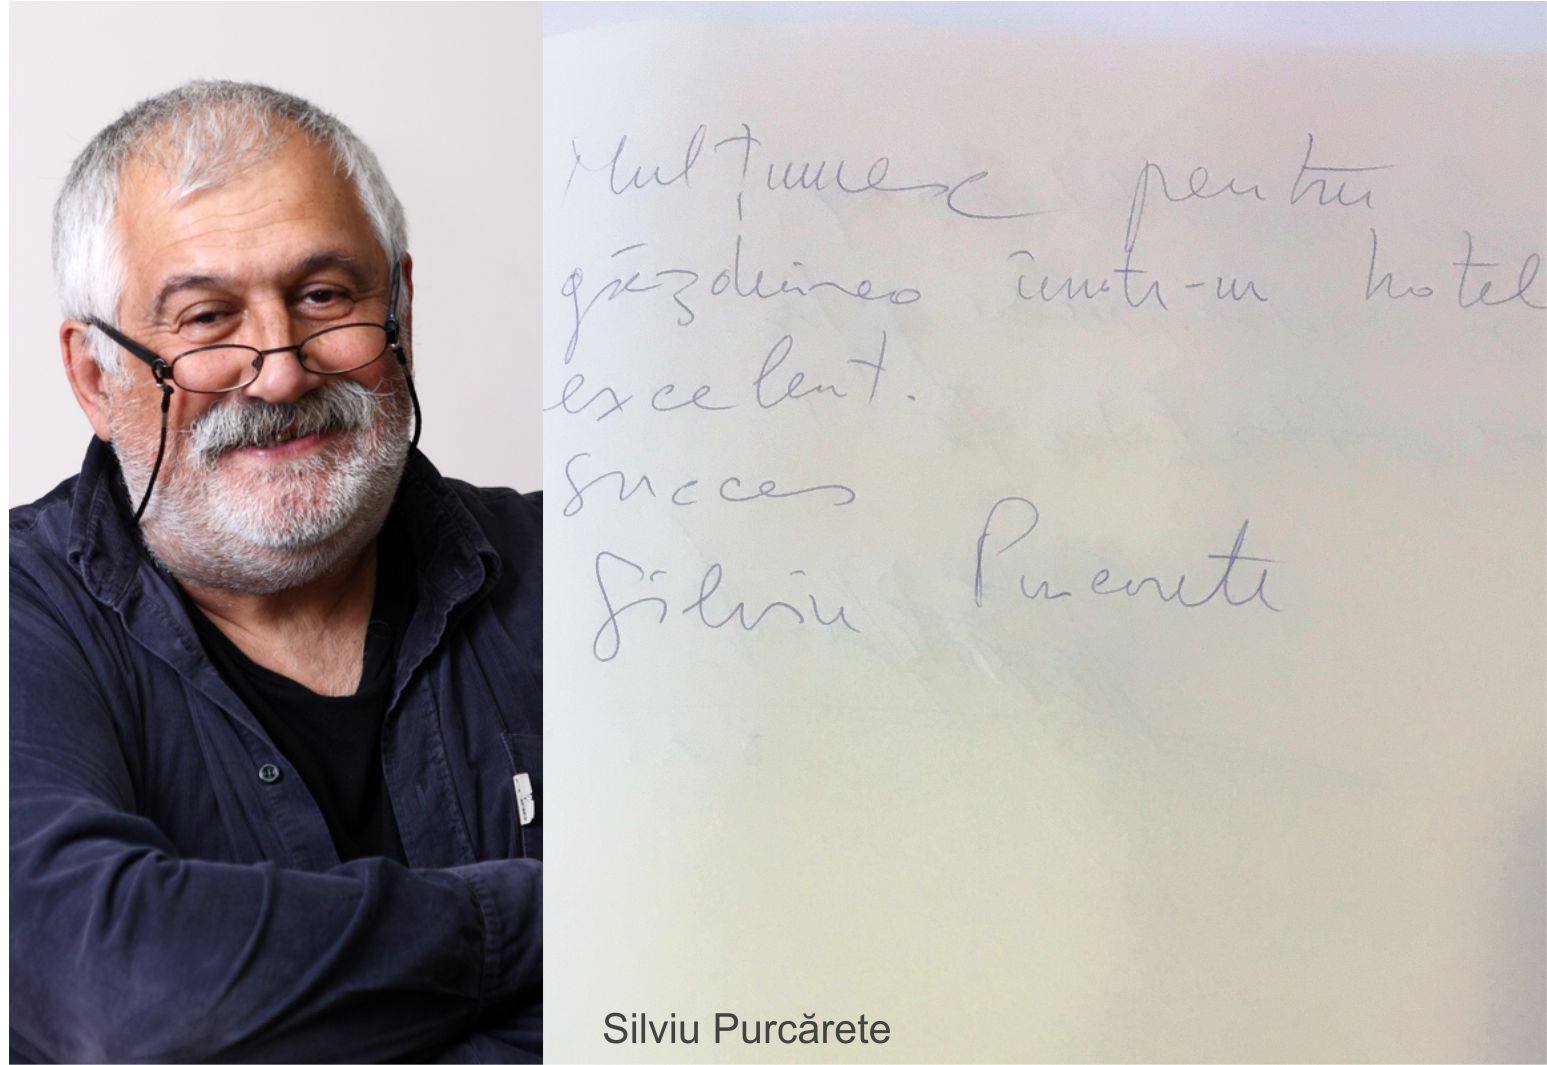 Mulțumesc pentru
găzduirea într-un hotel
excelent.
succes
Silviu Purcarete
Silviu Purcărete